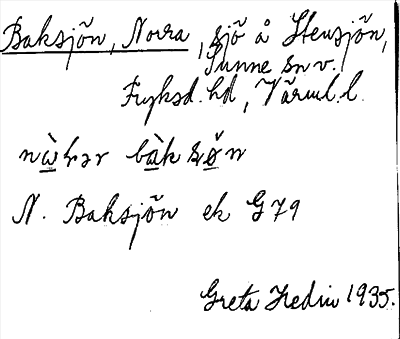 Baksjön, Norra, sjö å Stensjön,
Sunne sn v.
Fryksd. hd, Värml. l.
nὼrər bàksøn
N. Baksjön ek G 79
Greta Hedin 1935.